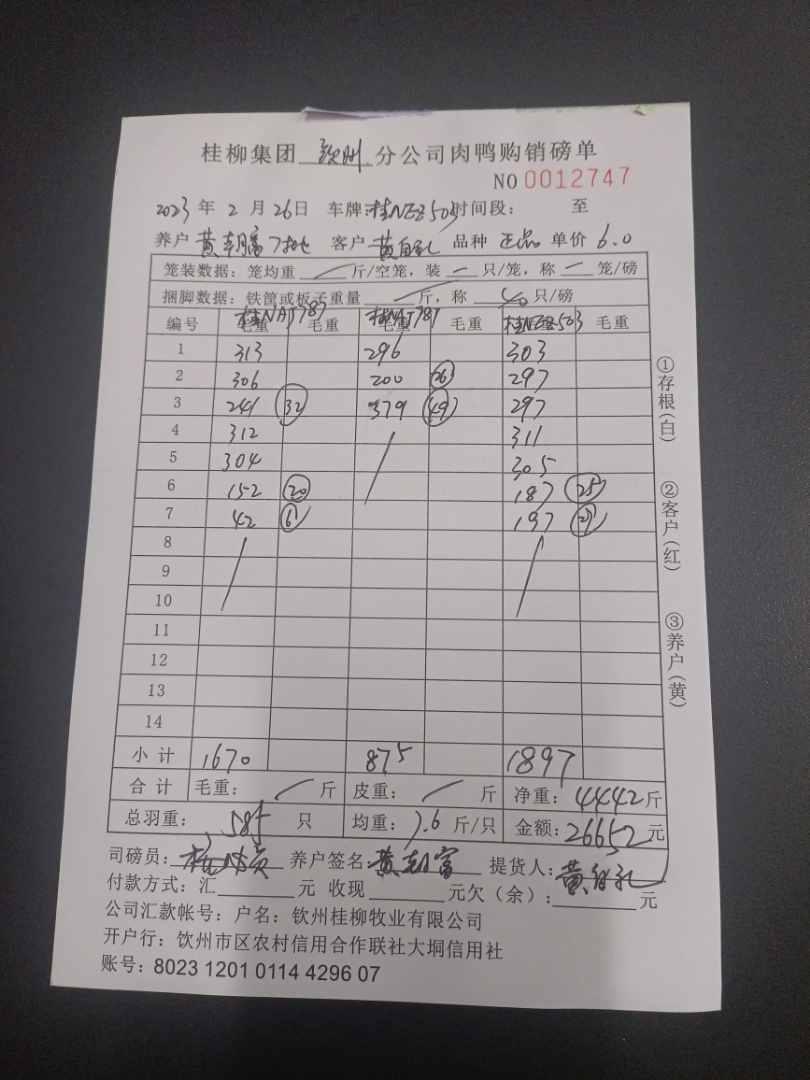 桂柳集团 钦州 分公司肉鸭购销磅单
NO 0012747
2023 年 2 月 26日 车牌: 桂NEZ503 时间段: 至
养户 黄朝富 客户 黄自礼 品种 正品 单价 6.0
笼装数据: 笼均重 / 斤/空笼, 装 一 只/笼, 称 一 笼/磅
捆脚数据: 铁筐或板子重量 / 斤, 称 40 只/磅
编号 毛重 桂NAJ787 毛重 毛重 桂NAJ787 毛重 毛重 桂NEZ503 毛重
1 313 296 303
2 306 200 26 297
3 241 32 379 49 297
4 312 311
5 304 305
6 152 20 187 25
7 42 6 197 27
8
9
10
11
12
13
14
小计 1670 875 1897
合计 毛重: / 斤 皮重: / 斤 净重: 4442 斤
总羽重: 585 只 均重: 7.6 斤/只 金额: 26652 元
司磅员: 养户签名: 黄朝富 提货人: 黄自礼
付款方式: 汇 元 收现 元欠(余): 元
公司汇款帐号: 户名: 钦州桂柳牧业有限公司
开户行: 饮州市区农村信用合作联社大垌信用社
账号: 8023 1201 0114 4296 07
①存根(白)
②客户(红)
③养户(黄)